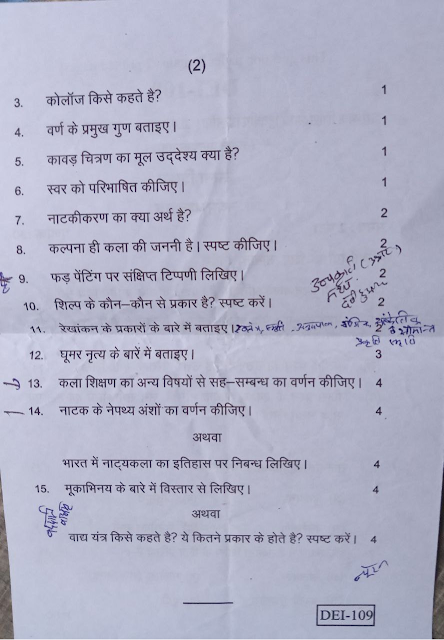 (2)
3. कोलॉज किसे कहते है? 1
4. वर्ण के प्रमुख गुण बताइए। 1
5. कावड़ चित्रण का मूल उद्देश्य क्या है? 1
6. स्वर को परिभाषित कीजिए। 1
7. नाटकीकरण का क्या अर्थ है? 2
8. कल्पना ही कला की जननी है। स्पष्ट कीजिए। 2
9. फड़ पेंटिंग पर संक्षिप्त टिप्पणी लिखिए। 2
10. शिल्प के कौन–कौन से प्रकार है? स्पष्ट करें। 2
11. रेखांकन के प्रकारों के बारे में बताइए। 2
12. घूमर नृत्य के बारें में बताइए। 3
13. कला शिक्षण का अन्य विषयों से सह–सम्बन्ध का वर्णन कीजिए। 4
14. नाटक के नेपथ्य अंशों का वर्णन कीजिए। 4
अथवा
भारत में नाट्यकला का इतिहास पर निबन्ध लिखिए। 4
15. मूकाभिनय के बारे में विस्तार से लिखिए। 4
अथवा
वाद्य यंत्र किसे कहते है? ये कितने प्रकार के होते है? स्पष्ट करें। 4
DEI-109